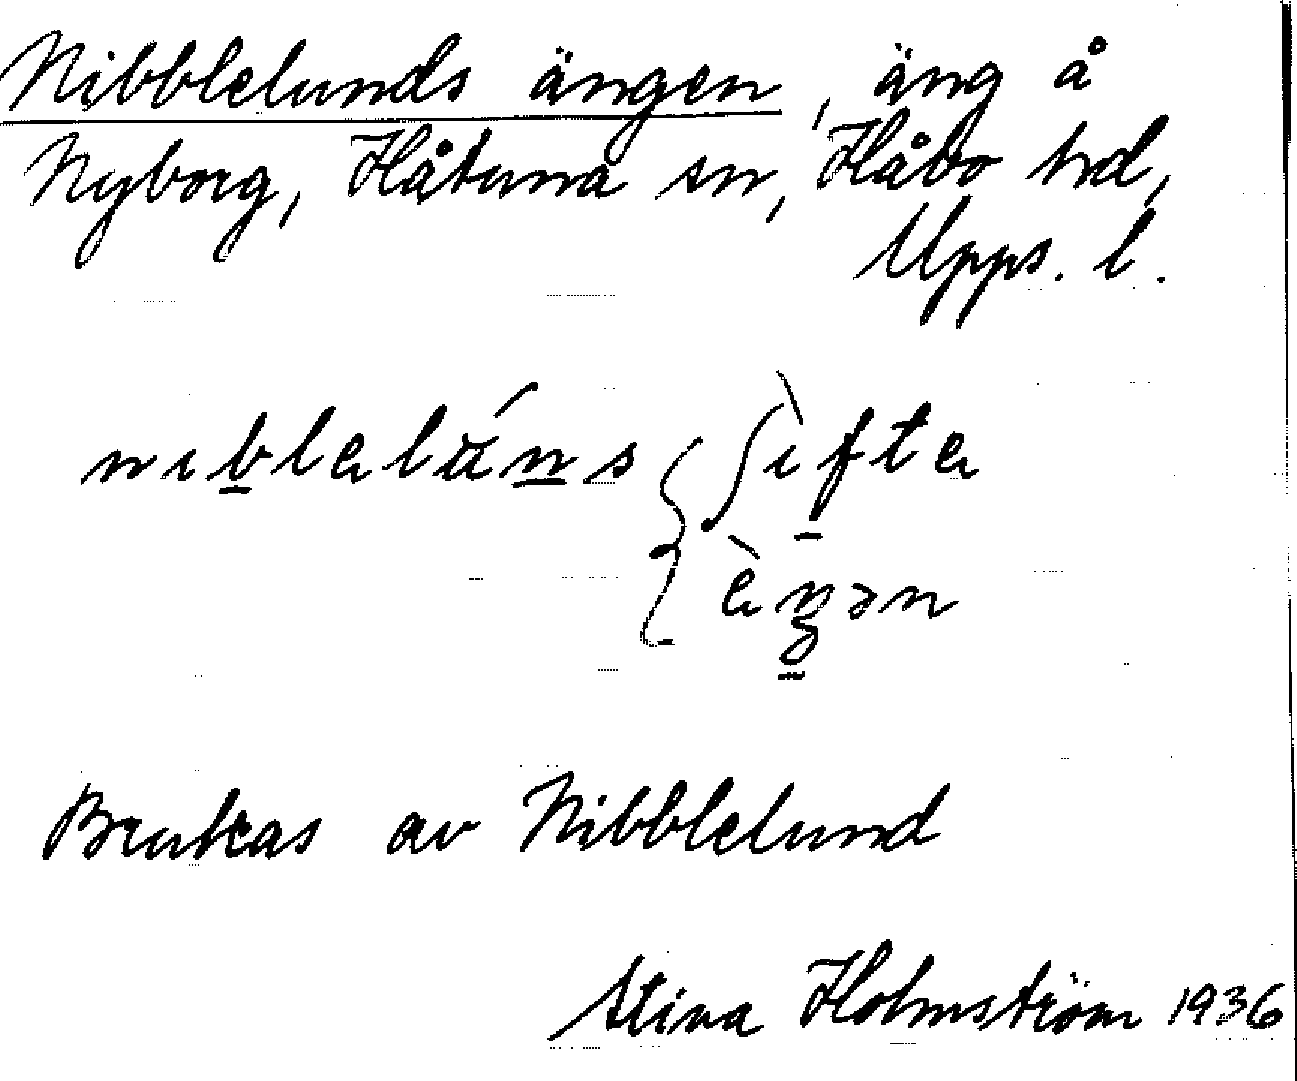 Nibblelunds ängen, äng å
Nyborg, Håtuna sn, Håbo hd,
Upps. l.
nıblelú̈ns { ʃìfte
èŋən
Brukas av Nibblelund
Stina Holmström 1936